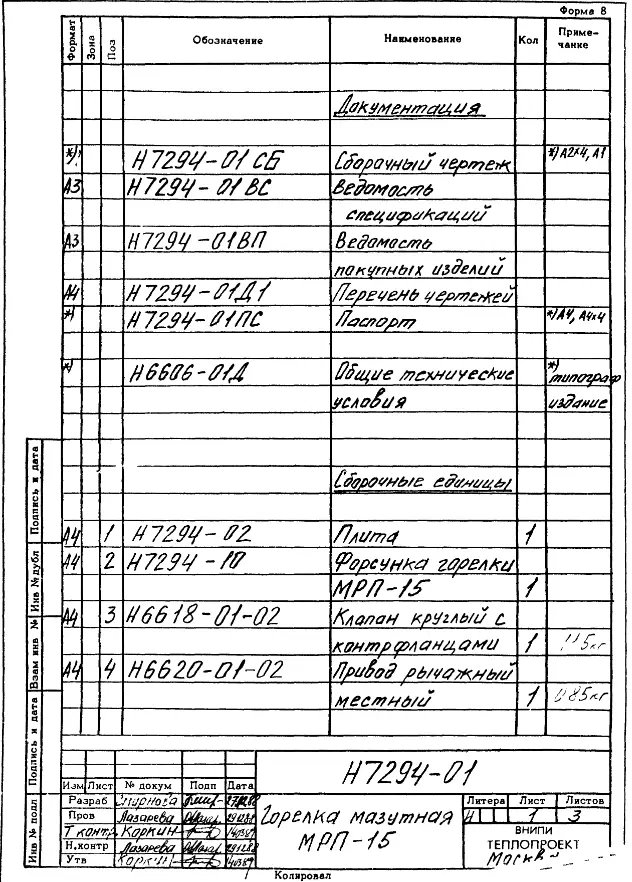 Форма 8
Формат Зона Поз Обозначение Наименование Кол Приме-
чание
Документация
*) Н7294-01 СБ Сборочный чертеж *) А2×4, А1
А3 Н7294-01 ВС Ведомость
спецификаций
А3 Н7294-01ВП Ведомость
покупных изделий
А4 Н7294-01Д1 Перечень чертежей
*) Н7294-01ПС Паспорт *) А4, А4×4
*) Н6606-01Д Общие технические *) типограф
условия издание
Сборочные единицы
А4 1 Н7294-02 Плита 1
А4 2 Н7294-10 Форсунка горелки
МРП-15 1
А4 3 Н6618-01-02 Клапан круглый с
контрфланцами 1
А4 4 Н6620-01-02 Привод рычажный
местный 1
Подпись и дата
Инв № дубл
Взам инв №
Подпись и дата
Инв № подл
Н7294-01
Изм Лист № докум Подп Дата
Разраб Смирнова
Пров Лазарева
Т контр Коркин
Н.контр Лазарева
Утв Коркин
Горелка мазутная
МРП-15
Литера Лист Листов
И 1 3
ВНИПИ
ТЕПЛОПРОЕКТ
Москва
Копировал